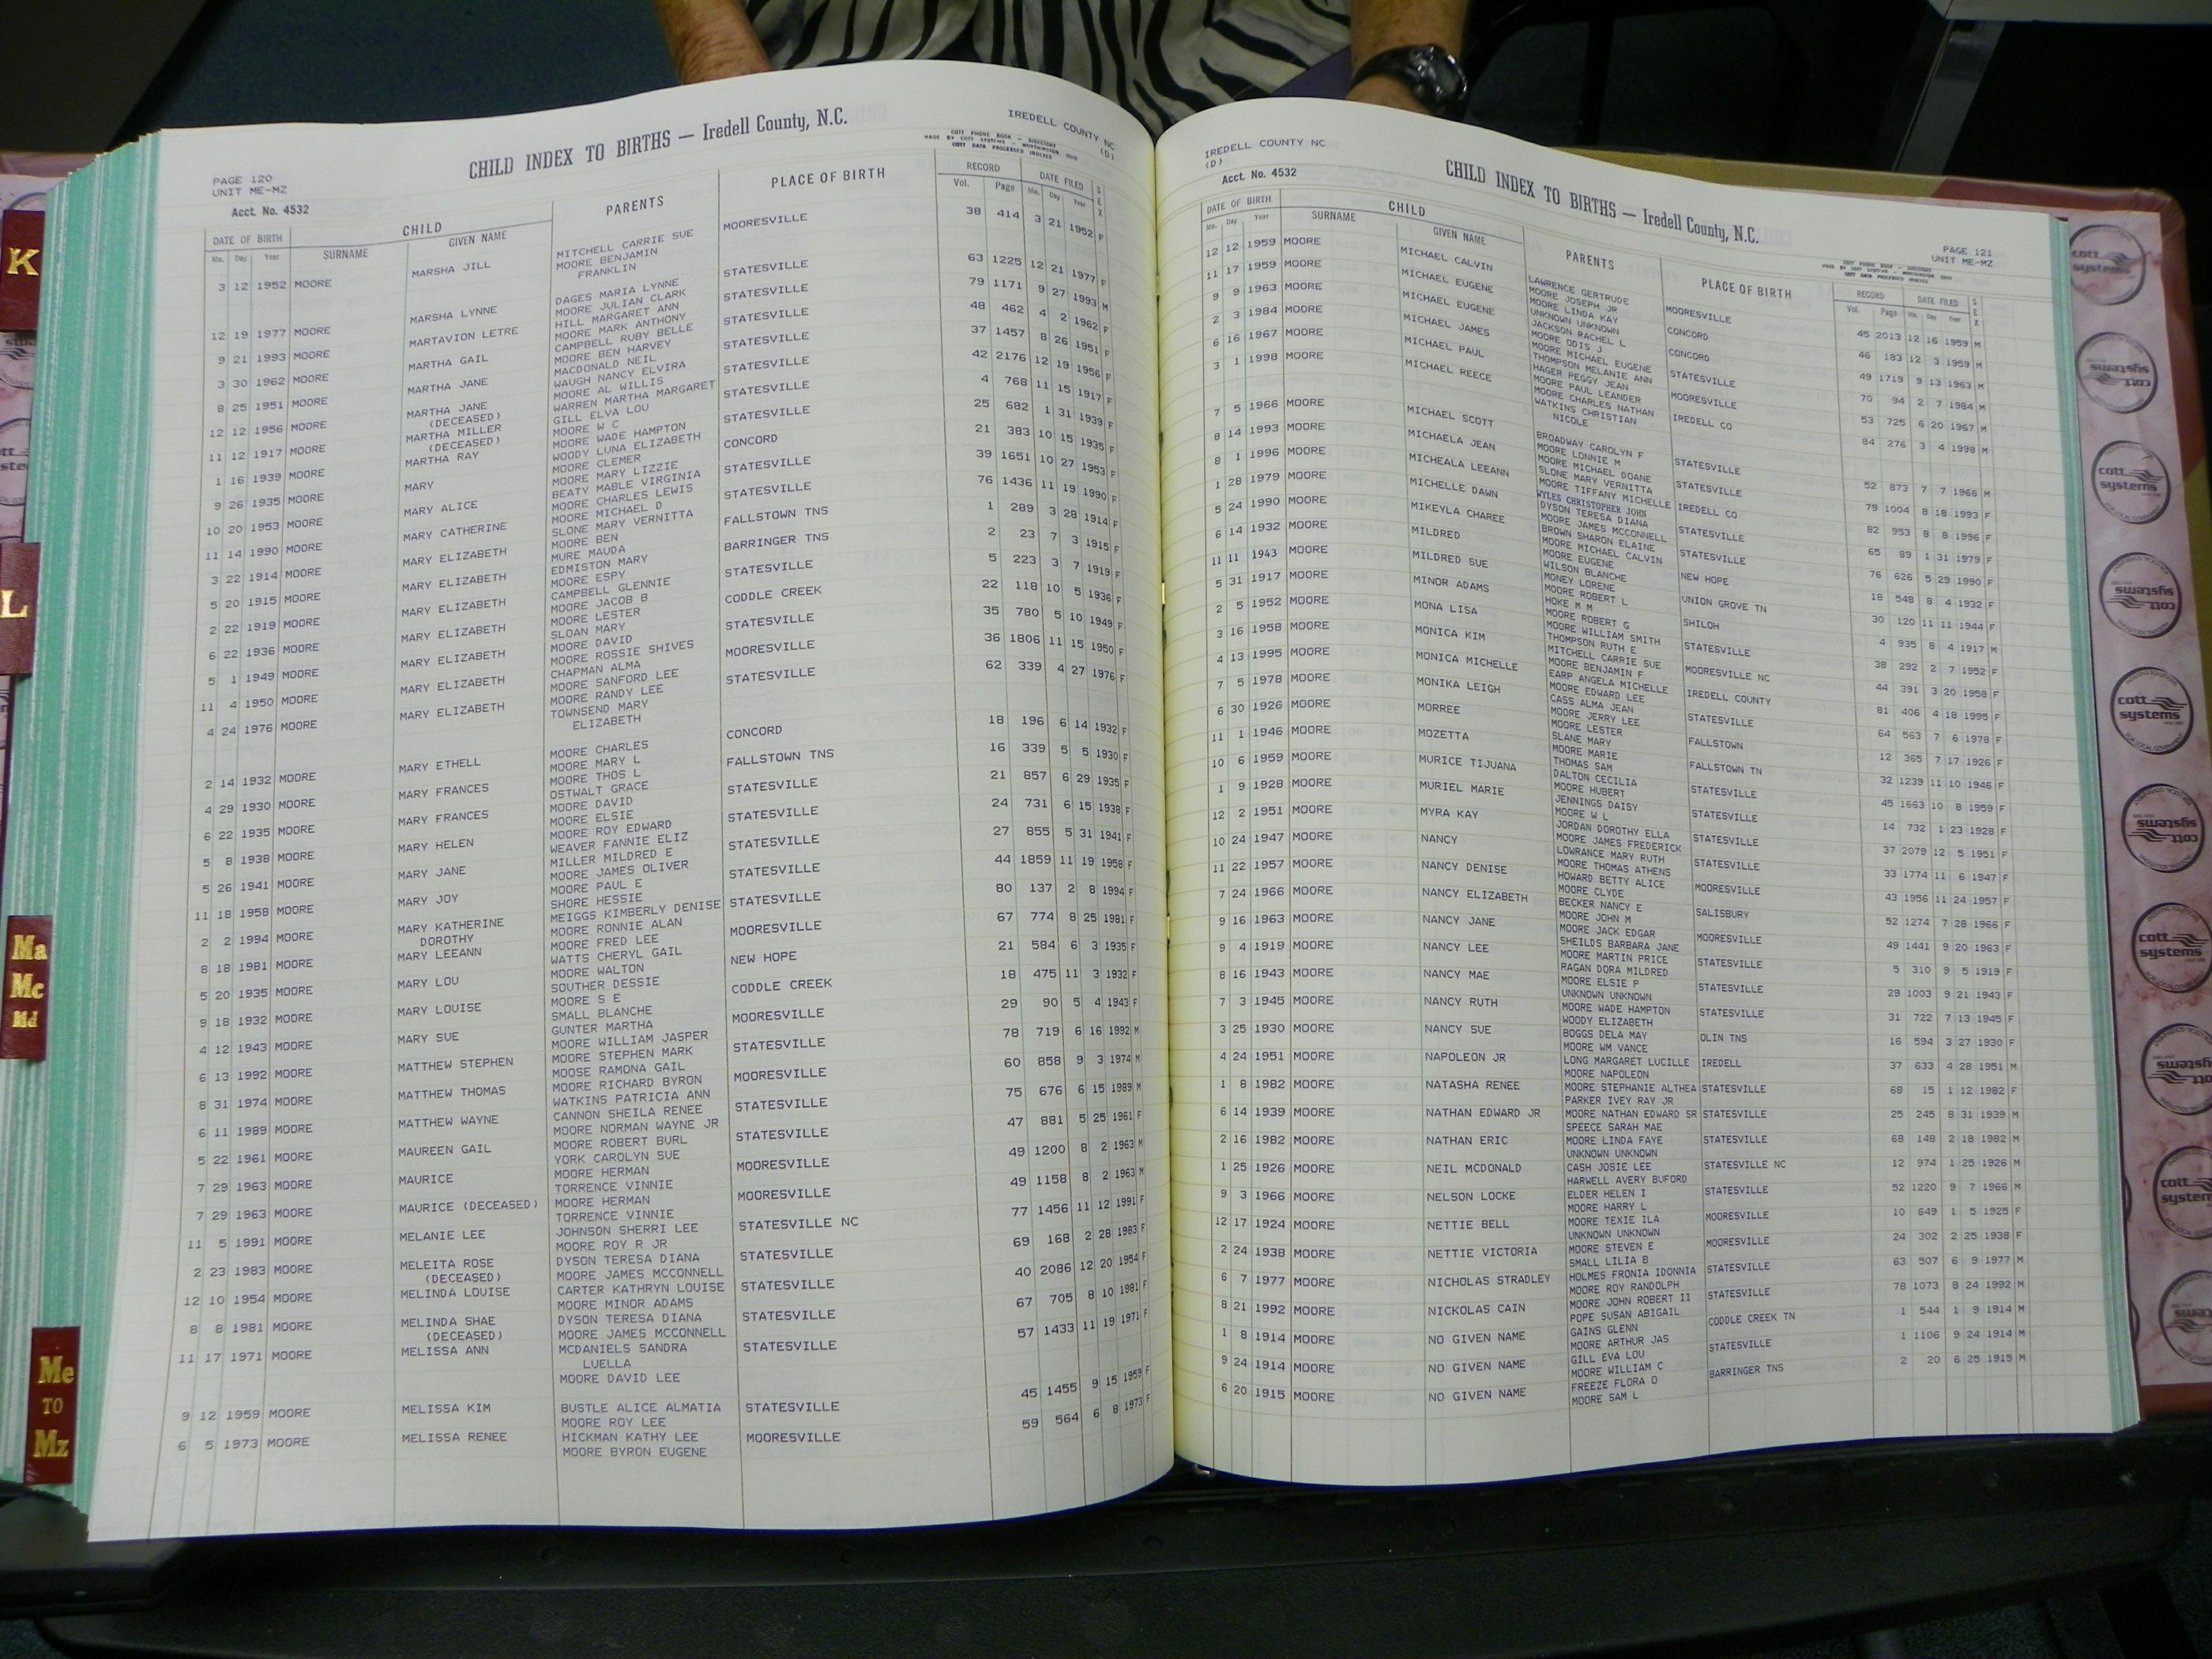 PAGE 120
UNIT ME-MZ
Acct. No. 4532
CHILD INDEX TO BIRTHS — Iredell County, N.C.
IREDELL COUNTY NC
(D)
COTT PHONE BOOK - DIRECTORY
MADE BY COTT SYSTEMS - WORTHINGTON, OHIO
COTT DATA PROCESSED INDEXES
DATE OF BIRTH CHILD PARENTS PLACE OF BIRTH RECORD DATE FILED SEX
Mo. Day Year SURNAME GIVEN NAME Vol. Page Mo. Day Year
3 12 1952 MOORE MARSHA JILL MITCHELL CARRIE SUE MOORESVILLE 38 414 3 21 1952 F
MOORE BENJAMIN
FRANKLIN
12 19 1977 MOORE MARSHA LYNNE DAGES MARIA LYNNE STATESVILLE 63 1225 12 21 1977 F
MOORE JULIAN CLARK
9 21 1993 MOORE MARTAVION LETRE HILL MARGARET ANN STATESVILLE 79 1171 9 27 1993 M
MOORE MARK ANTHONY
3 30 1962 MOORE MARTHA GAIL CAMPBELL RUBY BELLE STATESVILLE 48 462 4 2 1962 F
MOORE BEN HARVEY
8 25 1951 MOORE MARTHA JANE MACDONALD NEIL STATESVILLE 37 1457 8 26 1951 F
WAUGH NANCY ELVIRA
12 12 1956 MOORE MARTHA JANE MOORE AL WILLIS STATESVILLE 42 2176 12 19 1956 F
(DECEASED) WARREN MARTHA MARGARET
11 12 1917 MOORE MARTHA MILLER GILL ELVA LOU STATESVILLE 4 768 11 15 1917 F
(DECEASED) MOORE W C
1 16 1939 MOORE MARTHA RAY MOORE WADE HAMPTON STATESVILLE 25 682 1 31 1939 F
WOODY LUNA ELIZABETH
9 26 1935 MOORE MARY MOORE CLEMER CONCORD 21 383 10 15 1935 F
MOORE MARY LIZZIE
10 20 1953 MOORE MARY ALICE BEATY MABLE VIRGINIA STATESVILLE 39 1651 10 27 1953 F
MOORE CHARLES LEWIS
11 14 1990 MOORE MARY CATHERINE MOORE MICHAEL D STATESVILLE 76 1436 11 19 1990 F
SLONE MARY VERNITTA
3 22 1914 MOORE MARY ELIZABETH MOORE BEN FALLSTOWN TNS 1 289 3 28 1914 F
MURE MAUDA
5 20 1915 MOORE MARY ELIZABETH EDMISTON MARY BARRINGER TNS 2 23 7 3 1915 F
MOORE ESPY
2 22 1919 MOORE MARY ELIZABETH CAMPBELL GLENNIE STATESVILLE 5 223 3 7 1919 F
MOORE JACOB B
6 22 1936 MOORE MARY ELIZABETH MOORE LESTER CODDLE CREEK 22 118 10 5 1936 F
SLOAN MARY
5 1 1949 MOORE MARY ELIZABETH MOORE DAVID STATESVILLE 35 780 5 10 1949 F
MOORE ROSSIE SHIVES
11 4 1950 MOORE MARY ELIZABETH CHAPMAN ALMA MOORESVILLE 36 1806 11 15 1950 F
MOORE SANFORD LEE
4 24 1976 MOORE MARY ELIZABETH MOORE RANDY LEE STATESVILLE 62 339 4 27 1976 F
TOWNSEND MARY
ELIZABETH
2 14 1932 MOORE MARY ETHELL MOORE CHARLES CONCORD 18 196 6 14 1932 F
MOORE MARY L
4 29 1930 MOORE MARY FRANCES MOORE THOS L FALLSTOWN TNS 16 339 5 5 1930 F
OSTWALT GRACE
6 22 1935 MOORE MARY FRANCES MOORE DAVID STATESVILLE 21 857 6 29 1935 F
MOORE ELSIE
5 8 1938 MOORE MARY HELEN MOORE ROY EDWARD STATESVILLE 24 731 6 15 1938 F
WEAVER FANNIE ELIZ
5 26 1941 MOORE MARY JANE MILLER MILDRED E STATESVILLE 27 855 5 31 1941 F
MOORE JAMES OLIVER
11 18 1958 MOORE MARY JOY MOORE PAUL E STATESVILLE 44 1859 11 19 1958 F
SHORE HESSIE
2 2 1994 MOORE MARY KATHERINE MEIGGS KIMBERLY DENISE STATESVILLE 80 137 2 8 1994 F
DOROTHY MOORE RONNIE ALAN
8 18 1981 MOORE MARY LEEANN MOORE FRED LEE MOORESVILLE 67 774 8 25 1981 F
WATTS CHERYL GAIL
5 20 1935 MOORE MARY LOU MOORE WALTON NEW HOPE 21 584 6 3 1935 F
SOUTHER DESSIE
9 18 1932 MOORE MARY LOUISE MOORE S E CODDLE CREEK 18 475 11 3 1932 F
SMALL BLANCHE
4 12 1943 MOORE MARY SUE GUNTER MARTHA MOORESVILLE 29 90 5 4 1943 F
MOORE WILLIAM JASPER
6 13 1992 MOORE MATTHEW STEPHEN MOORE STEPHEN MARK STATESVILLE 78 719 6 16 1992 M
MOOSE RAMONA GAIL
8 31 1974 MOORE MATTHEW THOMAS MOORE RICHARD BYRON MOORESVILLE 60 858 9 3 1974 M
WATKINS PATRICIA ANN
6 11 1989 MOORE MATTHEW WAYNE CANNON SHEILA RENEE STATESVILLE 75 676 6 15 1989 M
MOORE NORMAN WAYNE JR
5 22 1961 MOORE MAUREEN GAIL MOORE ROBERT BURL STATESVILLE 47 881 5 25 1961 F
YORK CAROLYN SUE
7 29 1963 MOORE MAURICE MOORE HERMAN MOORESVILLE 49 1200 8 2 1963 M
TORRENCE VINNIE
7 29 1963 MOORE MAURICE (DECEASED) MOORE HERMAN MOORESVILLE 49 1158 8 2 1963 M
TORRENCE VINNIE
11 5 1991 MOORE MELANIE LEE JOHNSON SHERRI LEE STATESVILLE NC 77 1456 11 12 1991 F
MOORE ROY R JR
2 23 1983 MOORE MELEITA ROSE DYSON TERESA DIANA STATESVILLE 69 168 2 28 1983 F
(DECEASED) MOORE JAMES MCCONNELL
12 10 1954 MOORE MELINDA LOUISE CARTER KATHRYN LOUISE STATESVILLE 40 2086 12 20 1954 F
MOORE MINOR ADAMS
8 8 1981 MOORE MELINDA SHAE DYSON TERESA DIANA STATESVILLE 67 705 8 10 1981 F
(DECEASED) MOORE JAMES MCCONNELL
11 17 1971 MOORE MELISSA ANN MCDANIELS SANDRA STATESVILLE 57 1433 11 19 1971 F
LUELLA
MOORE DAVID LEE
9 12 1959 MOORE MELISSA KIM BUSTLE ALICE ALMATIA STATESVILLE 45 1455 9 15 1959 F
MOORE ROY LEE
6 5 1973 MOORE MELISSA RENEE HICKMAN KATHY LEE MOORESVILLE 59 564 6 8 1973 F
MOORE BYRON EUGENE
K
L
Ma
Mc
Md
Me
TO
Mz
IREDELL COUNTY NC
(D)
Acct. No. 4532
CHILD INDEX TO BIRTHS — Iredell County, N.C.
PAGE 121
UNIT ME-MZ
COTT PHONE BOOK - DIRECTORY
MADE BY COTT SYSTEMS - WORTHINGTON, OHIO
COTT DATA PROCESSED INDEXES
DATE OF BIRTH CHILD PARENTS PLACE OF BIRTH RECORD DATE FILED SEX
Mo. Day Year SURNAME GIVEN NAME Vol. Page Mo. Day Year
12 12 1959 MOORE MICHAEL CALVIN LAWRENCE GERTRUDE MOORESVILLE 45 2013 12 16 1959 M
MOORE JOSEPH JR
11 17 1959 MOORE MICHAEL EUGENE MOORE LINDA KAY CONCORD 46 183 12 3 1959 M
UNKNOWN UNKNOWN
9 9 1963 MOORE MICHAEL EUGENE JACKSON RACHEL L CONCORD 49 1719 9 13 1963 M
MOORE ODIS J
2 3 1984 MOORE MICHAEL JAMES MOORE MICHAEL EUGENE STATESVILLE 70 94 2 7 1984 M
THOMPSON MELANIE ANN
6 16 1967 MOORE MICHAEL PAUL HAGER PEGGY JEAN MOORESVILLE 53 725 6 20 1967 M
MOORE PAUL LEANDER
3 1 1998 MOORE MICHAEL REECE MOORE CHARLES NATHAN IREDELL CO 84 276 3 4 1998 M
WATKINS CHRISTIAN
NICOLE
7 5 1966 MOORE MICHAEL SCOTT BROADWAY CAROLYN F STATESVILLE 52 873 7 7 1966 M
MOORE LONNIE M
8 14 1993 MOORE MICHAELA JEAN MOORE MICHAEL DOANE STATESVILLE 79 1004 8 18 1993 F
SLONE MARY VERNITTA
8 1 1996 MOORE MICHEALA LEEANN MOORE TIFFANY MICHELLE IREDELL CO 82 953 8 8 1996 F
WYLES CHRISTOPHER JOHN
1 28 1979 MOORE MICHELLE DAWN DYSON TERESA DIANA STATESVILLE 65 89 1 31 1979 F
MOORE JAMES MCCONNELL
5 24 1990 MOORE MIKEYLA CHAREE BROWN SHARON ELAINE STATESVILLE 76 626 5 29 1990 F
MOORE MICHAEL CALVIN
6 14 1932 MOORE MILDRED MOORE EUGENE NEW HOPE 18 548 8 4 1932 F
WILSON BLANCHE
11 11 1943 MOORE MILDRED SUE MONEY LORENE UNION GROVE TN 30 120 11 11 1944 F
MOORE ROBERT L
5 31 1917 MOORE MINOR ADAMS HOKE M M SHILOH 4 935 8 4 1917 M
MOORE ROBERT G
2 5 1952 MOORE MONA LISA MOORE WILLIAM SMITH STATESVILLE 38 292 2 7 1952 F
THOMPSON RUTH E
3 16 1958 MOORE MONICA KIM MITCHELL CARRIE SUE MOORESVILLE NC 44 391 3 20 1958 F
MOORE BENJAMIN F
4 13 1995 MOORE MONICA MICHELLE EARP ANGELA MICHELLE IREDELL COUNTY 81 406 4 18 1995 F
MOORE EDWARD LEE
7 5 1978 MOORE MONIKA LEIGH CASS ALMA JEAN STATESVILLE 64 563 7 6 1978 F
MOORE JERRY LEE
6 30 1926 MOORE MORREE MOORE LESTER FALLSTOWN 12 365 7 17 1926 F
SLANE MARY
11 1 1946 MOORE MOZETTA MOORE MARIE FALLSTOWN TN 32 1239 11 10 1946 F
THOMAS SAM
10 6 1959 MOORE MURICE TIJUANA DALTON CECILIA STATESVILLE 45 1663 10 8 1959 F
MOORE HUBERT
1 9 1928 MOORE MURIEL MARIE JENNINGS DAISY STATESVILLE 14 732 1 23 1928 F
MOORE W L
12 2 1951 MOORE MYRA KAY JORDAN DOROTHY ELLA STATESVILLE 37 2079 12 5 1951 F
MOORE JAMES FREDERICK
10 24 1947 MOORE NANCY LOWRANCE MARY RUTH STATESVILLE 33 1774 11 6 1947 F
MOORE THOMAS ATHENS
11 22 1957 MOORE NANCY DENISE HOWARD BETTY ALICE MOORESVILLE 43 1956 11 24 1957 F
MOORE CLYDE
7 24 1966 MOORE NANCY ELIZABETH BECKER NANCY E SALISBURY 52 1274 7 28 1966 F
MOORE JOHN M
9 16 1963 MOORE NANCY JANE MOORE JACK EDGAR MOORESVILLE 49 1441 9 20 1963 F
SHEILDS BARBARA JANE
9 4 1919 MOORE NANCY LEE MOORE MARTIN PRICE STATESVILLE 5 310 9 5 1919 F
RAGAN DORA MILDRED
8 16 1943 MOORE NANCY MAE MOORE ELSIE P STATESVILLE 29 1003 9 21 1943 F
UNKNOWN UNKNOWN
7 3 1945 MOORE NANCY RUTH MOORE WADE HAMPTON STATESVILLE 31 722 7 13 1945 F
WOODY ELIZABETH
3 25 1930 MOORE NANCY SUE BOGGS DELA MAY OLIN TNS 16 594 3 27 1930 F
MOORE WM VANCE
4 24 1951 MOORE NAPOLEON JR LONG MARGARET LUCILLE IREDELL 37 633 4 28 1951 M
MOORE NAPOLEON
1 8 1982 MOORE NATASHA RENEE MOORE STEPHANIE ALTHEA STATESVILLE 68 15 1 12 1982 F
PARKER IVEY RAY JR
6 14 1939 MOORE NATHAN EDWARD JR MOORE NATHAN EDWARD SR STATESVILLE 25 245 8 31 1939 M
SPEECE SARAH MAE
2 16 1982 MOORE NATHAN ERIC MOORE LINDA FAYE STATESVILLE 68 148 2 18 1982 M
UNKNOWN UNKNOWN
1 25 1926 MOORE NEIL MCDONALD CASH JOSIE LEE STATESVILLE NC 12 974 1 25 1926 M
HARWELL AVERY BUFORD
9 3 1966 MOORE NELSON LOCKE ELDER HELEN I STATESVILLE 52 1220 9 7 1966 M
MOORE HARRY L
12 17 1924 MOORE NETTIE BELL MOORE TEXIE ILA MOORESVILLE 10 649 1 5 1925 F
UNKNOWN UNKNOWN
2 24 1938 MOORE NETTIE VICTORIA MOORE STEVEN E MOORESVILLE 24 302 2 25 1938 F
SMALL LILIA B
6 7 1977 MOORE NICHOLAS STRADLEY HOLMES FRONIA IDONNIA STATESVILLE 63 507 6 9 1977 M
MOORE ROY RANDOLPH
8 21 1992 MOORE NICKOLAS CAIN MOORE JOHN ROBERT II STATESVILLE 78 1073 8 24 1992 M
POPE SUSAN ABIGAIL
1 8 1914 MOORE NO GIVEN NAME GAINS GLENN CODDLE CREEK TN 1 544 1 9 1914 M
MOORE ARTHUR JAS
9 24 1914 MOORE NO GIVEN NAME GILL EVA LOU STATESVILLE 1 1106 9 24 1914 M
MOORE WILLIAM C
6 20 1915 MOORE NO GIVEN NAME FREEZE FLORA O BARRINGER TNS 2 20 6 25 1915 M
MOORE SAM L
cott
systems
cott
systems
cott
systems
cott
systems
cott
systems
cott
systems